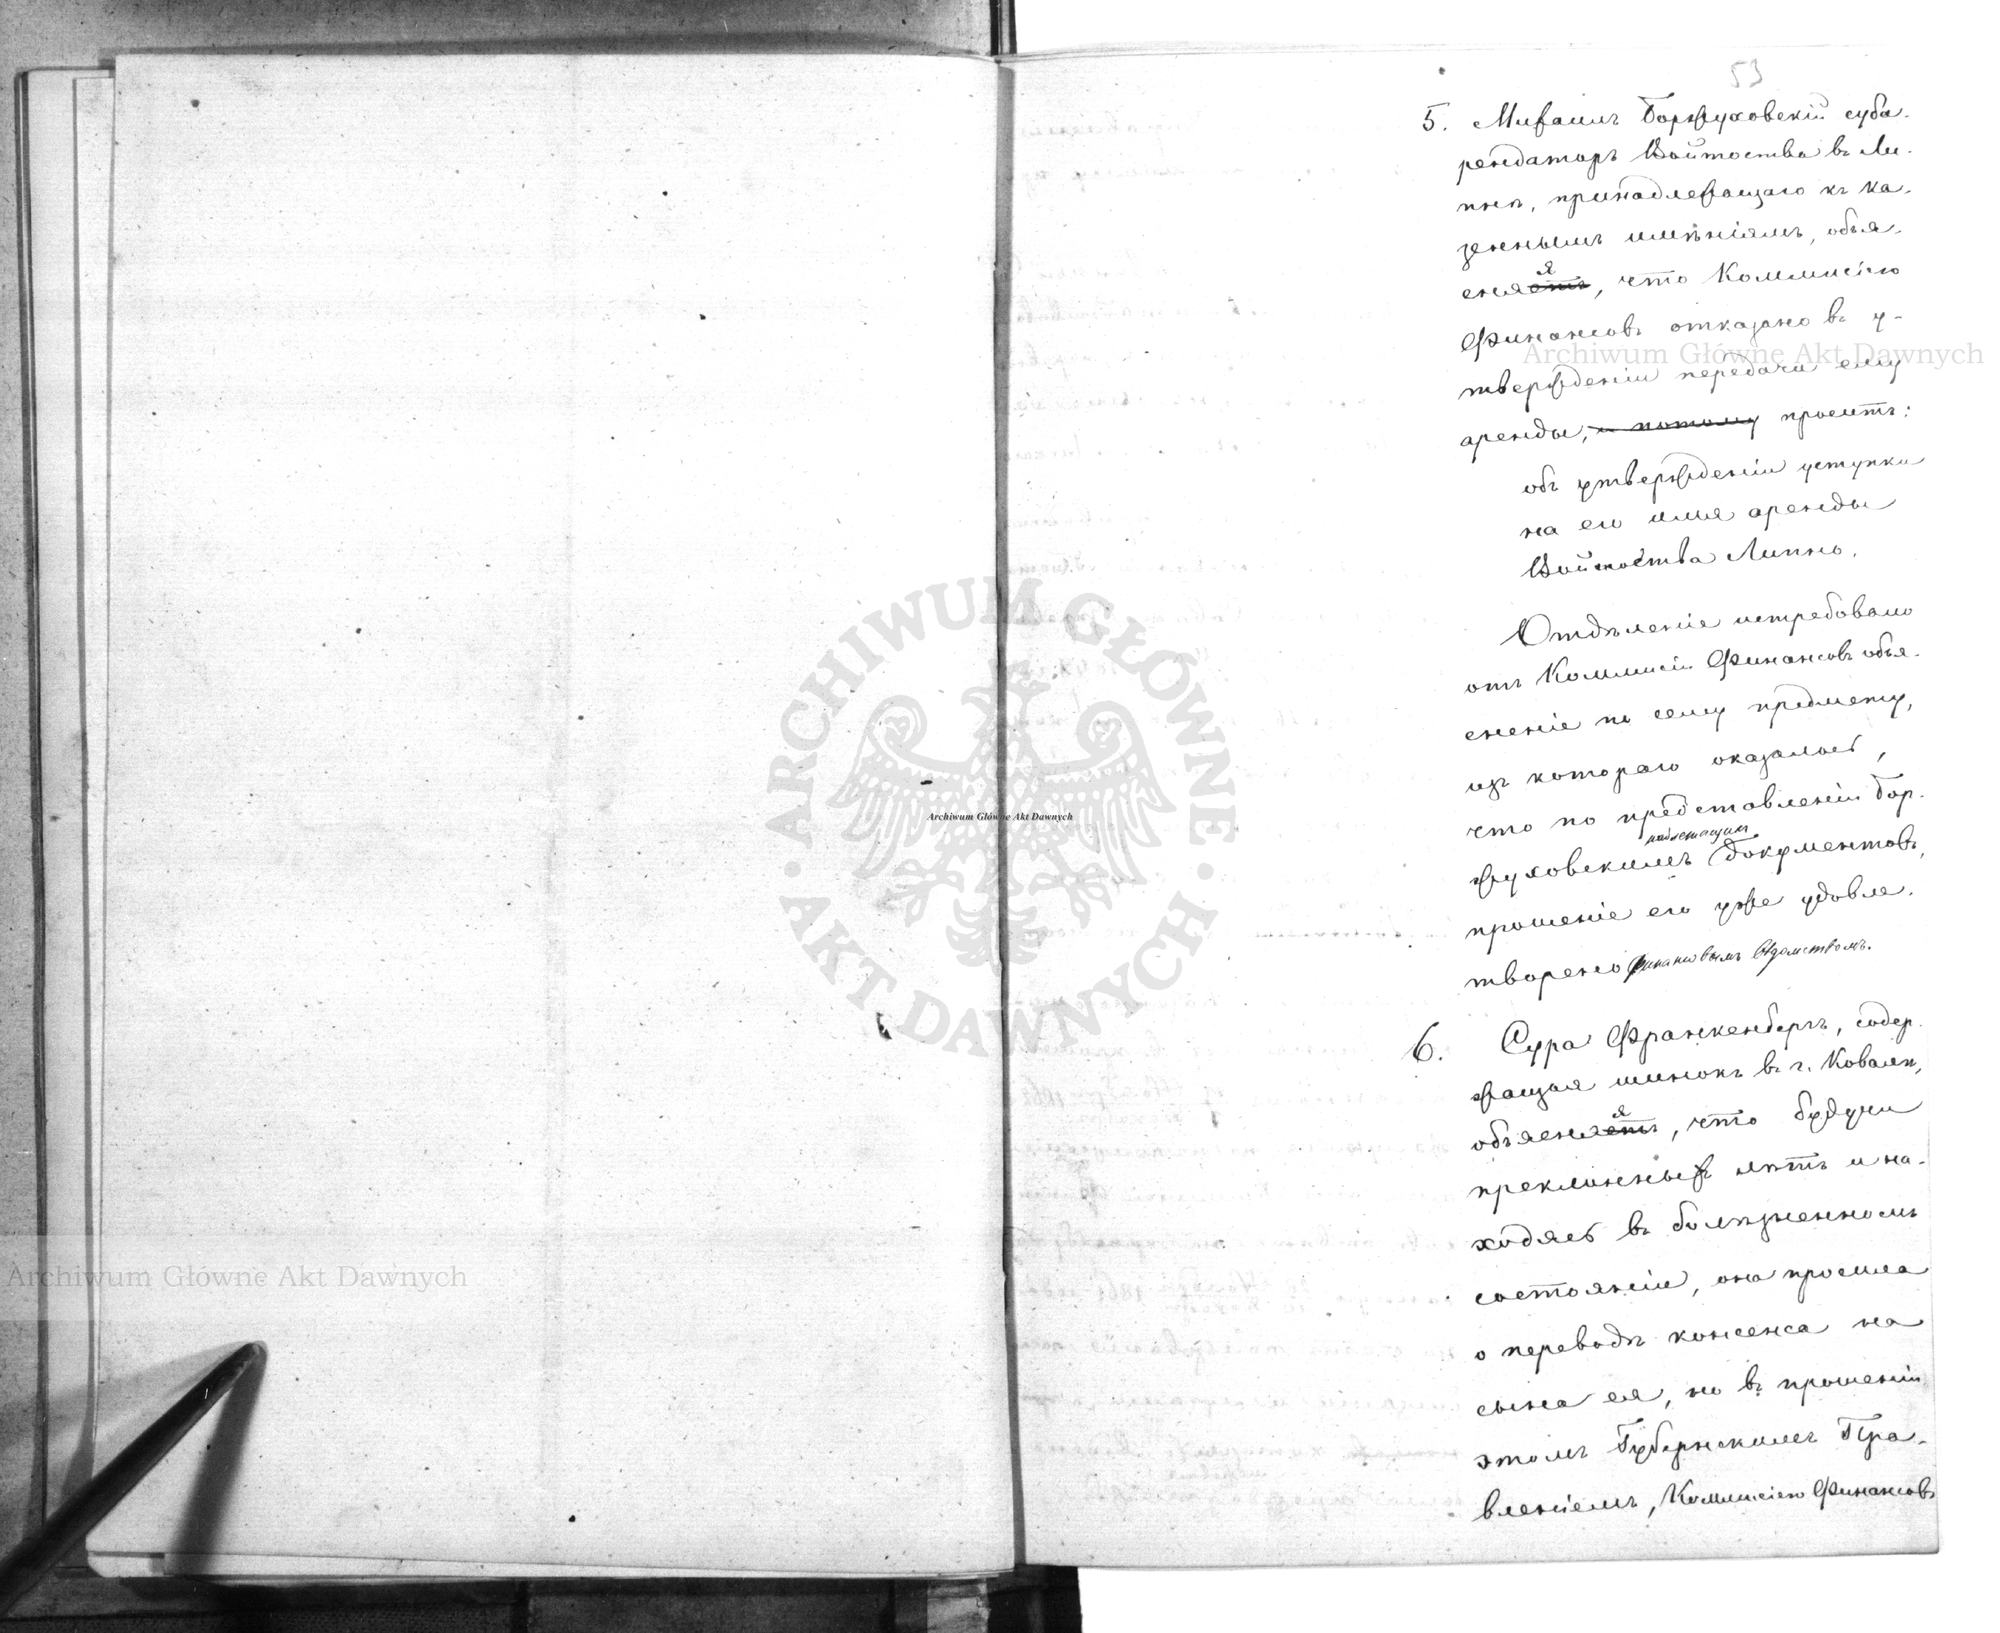 53
5. Михаилъ Боржуховскій суба-
рендаторъ Войтоства въ Ли-
пнѣ, принадлежащаго къ ка-
зеннымъ имѣніямъ, объя-
сняетъ я, что Коммисіею
Финансовъ отказано въ у-
твержденіи передачи ему
аренды, и потому проситъ:
объ утвержденіи уступки
на его имя аренды
Войтоства Липно.
Отдѣленіе истребовало
отъ Коммисіи Финансовъ объя-
сненіе по сему предмету,
изъ котораго оказалось,
что по представленіи Бор-
надлежащихъ
жуховскимъ документовъ,
прошеніе его уже удовле-
творено финансовымъ вѣдомствомъ.
6. Сура Франкенбергъ, содер-
жащая шинокъ въ г. Ковалѣ,
объясняетъ я, что будучи
преклонныхъ лѣтъ и на-
ходясь въ болѣзненномъ
состояніи, она просила
о переводѣ консенса на
сына ея, но въ прошеніи
этомъ Губернскимъ Пра-
вленіемъ, Коммисіею Финансовъ
Archiwum Główne Akt Dawnych
Archiwum Główne Akt Dawnych
Archiwum Główne Akt Dawnych
ARCHIWUM GŁÓWNE
AKT DAWNYCH